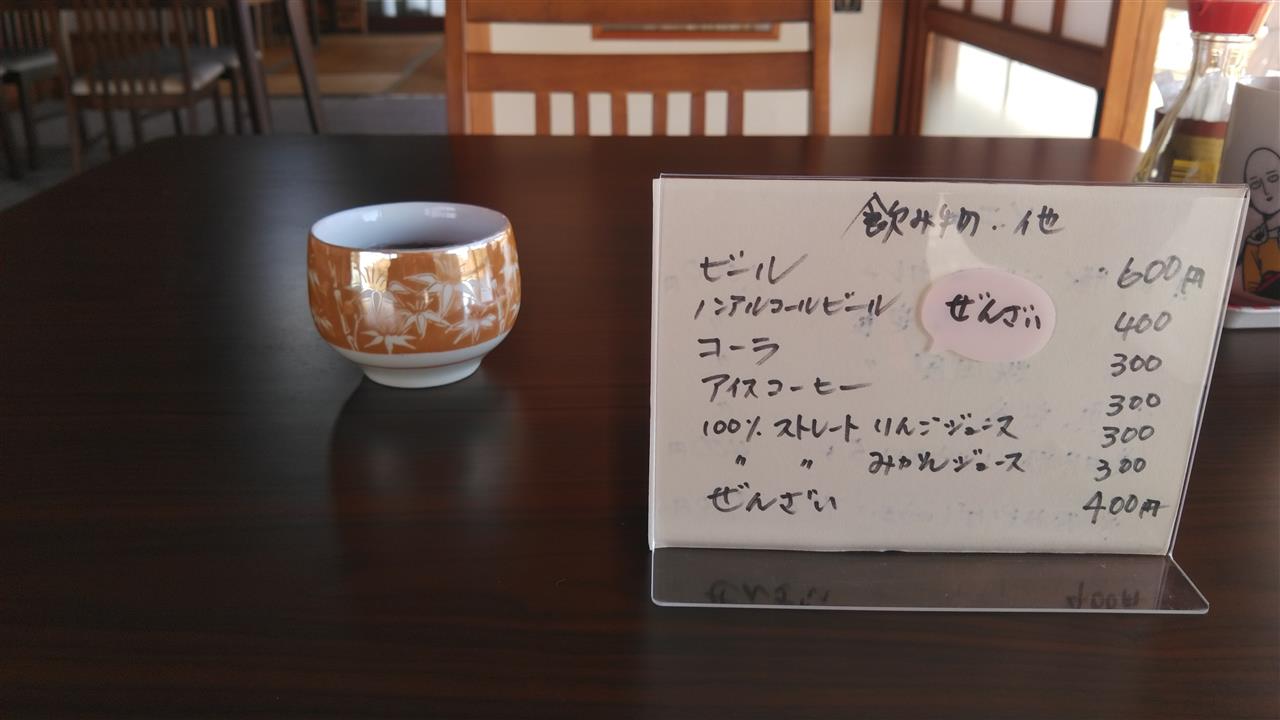 飲み物・他
ビール 600円
ノンアルコールビール 400
ぜんざい
コーラ 300
アイスコーヒー 300
100% ストレート りんごジュース 300
〃 〃 みかんジュース 300
ぜんざい 400円